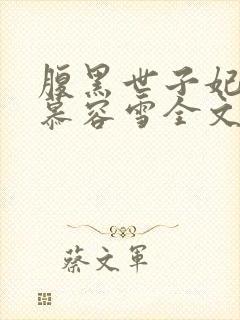 腹黑世子妃
慕容雪全文
蔡文军